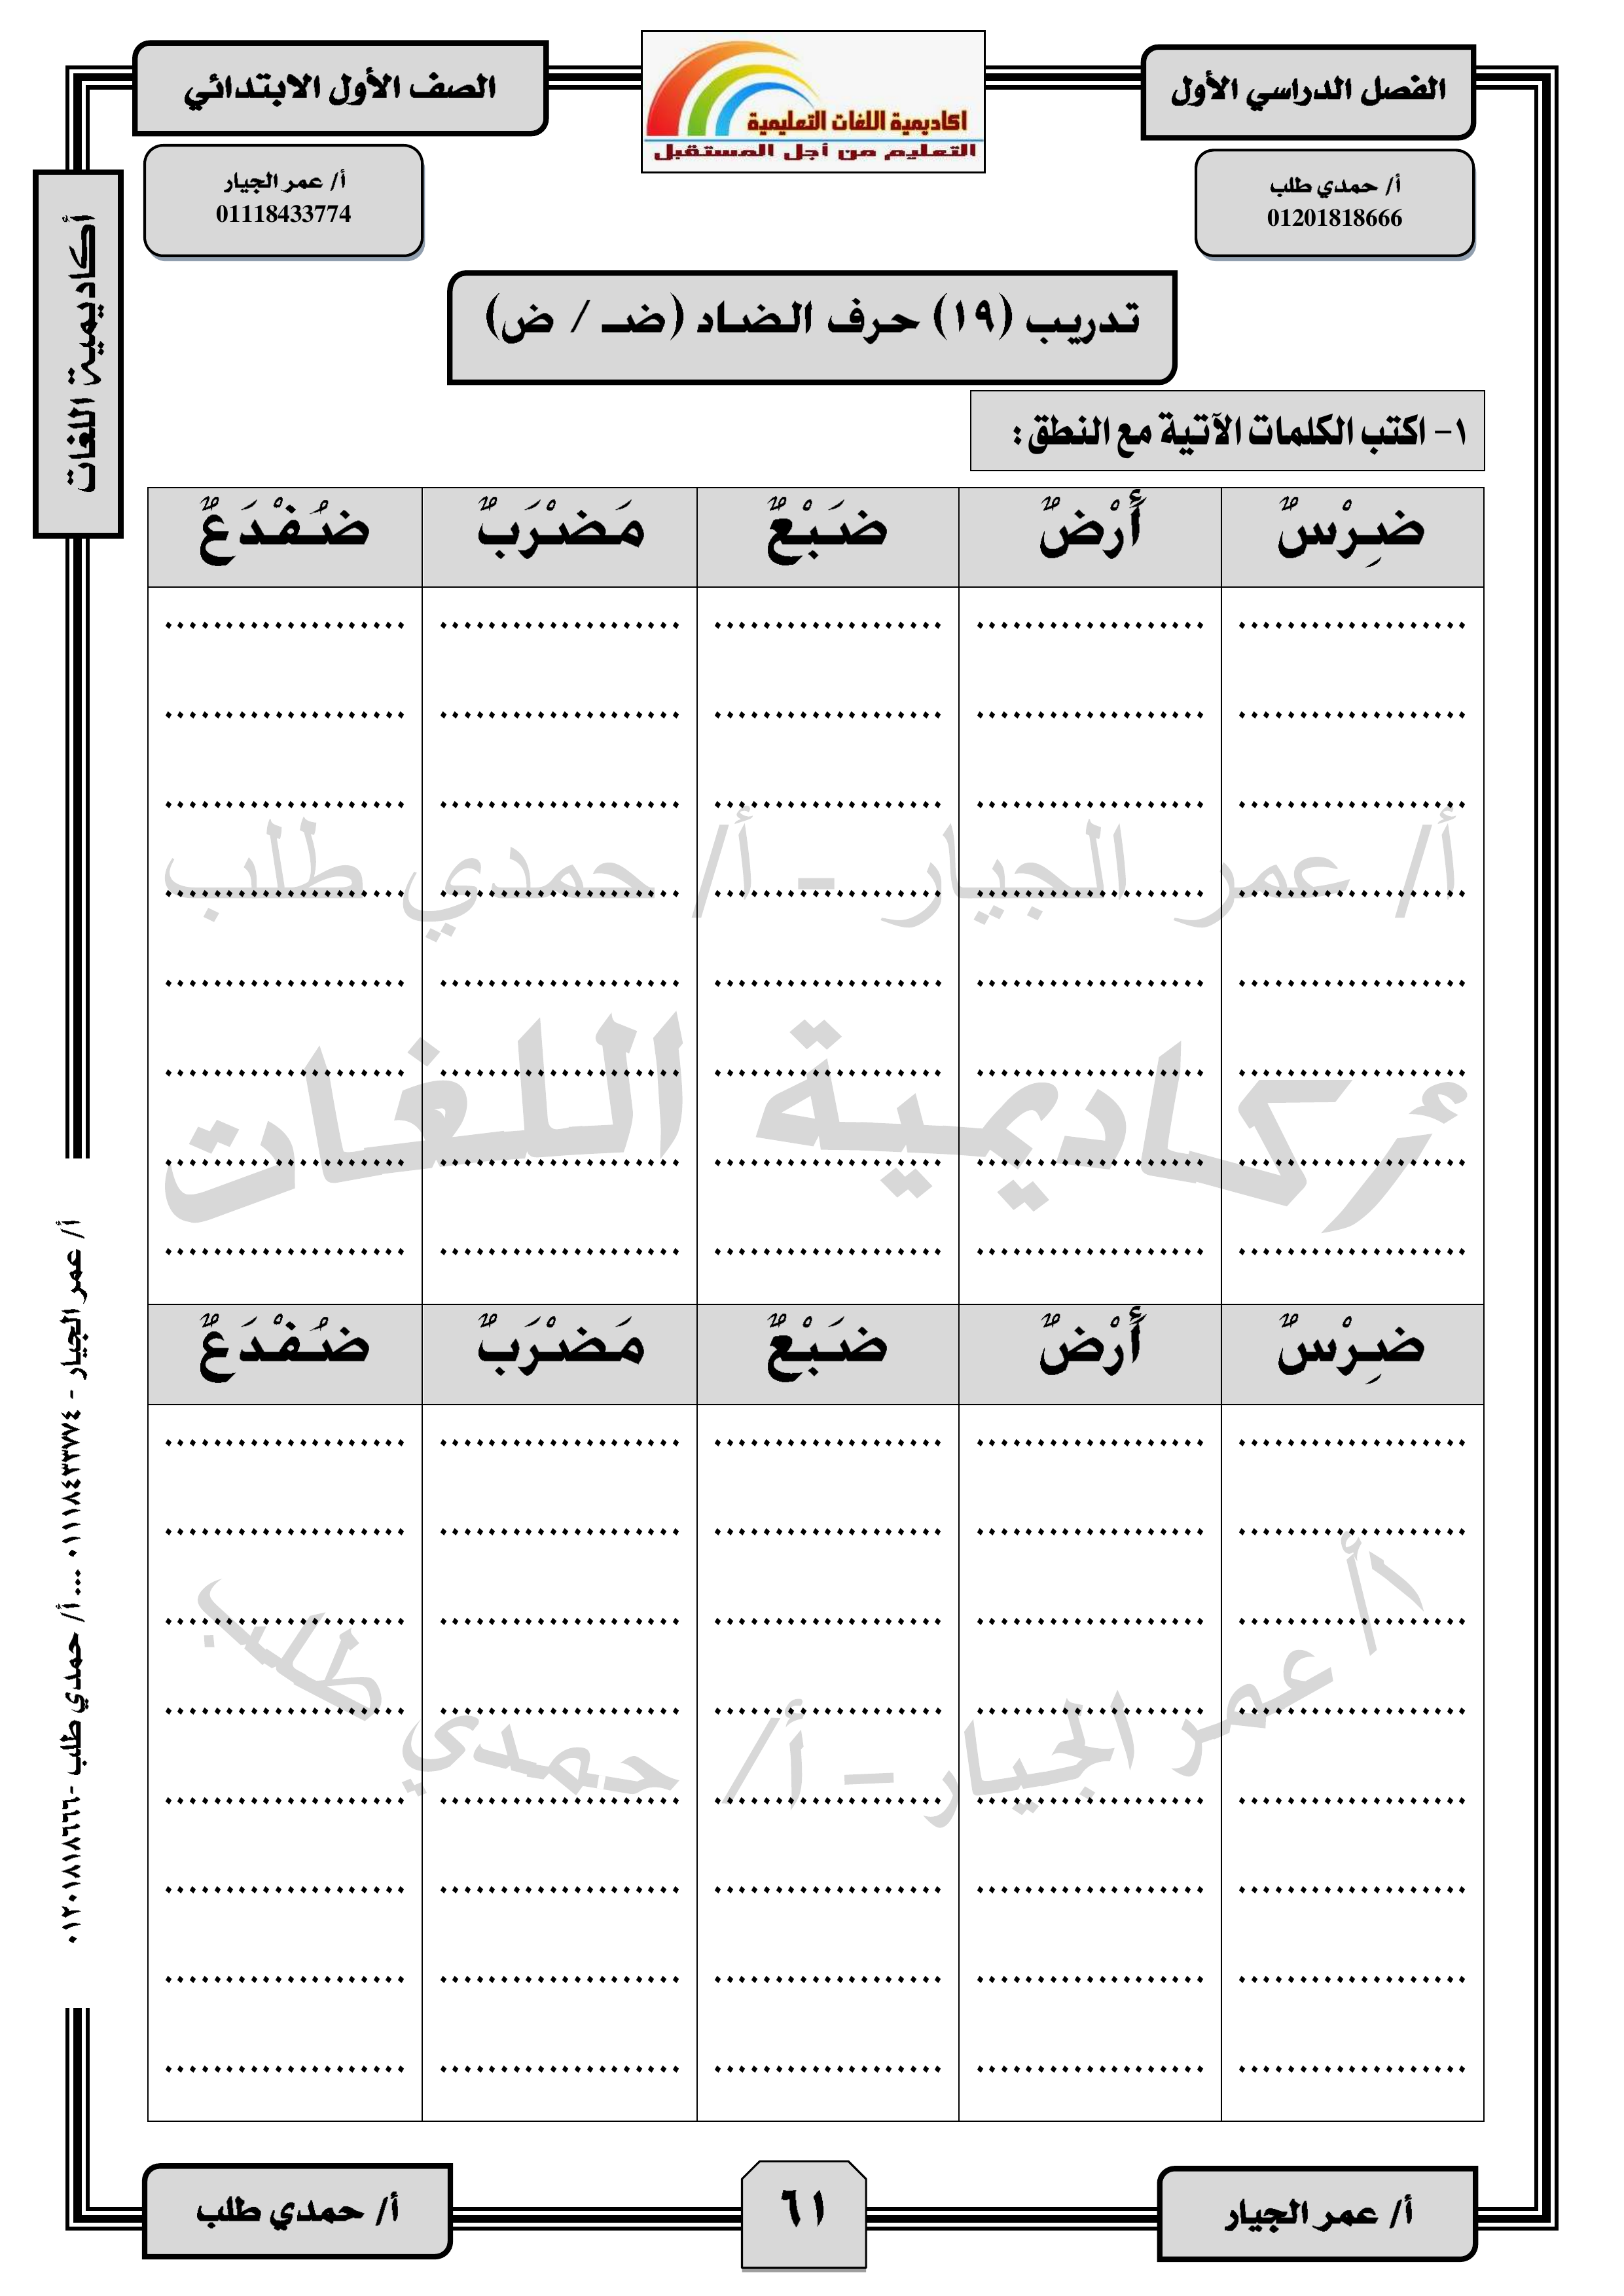 الفصل الدراسي الأول
اكاديمية اللغات التعليمية
التعليم من أجل المستقبل
الصف الأول الابتدائي
أ/ حمدي طلب
01201818666
أ/ عمر الجيار
01118433774
أكاديمية اللغات
تدريب (١٩) حرف الضاد (ضـ / ض)
١- اكتب الكلمات الآتية مع النطق :
ضِرْسٌ أَرْضٌ ضَبْعٌ مَضْرَبٌ ضُفْدَعٌ
أ/ عمر الجيار - أ/ حمدي طلب
أكاديمية اللغات
ضِرْسٌ أَرْضٌ ضَبْعٌ مَضْرَبٌ ضُفْدَعٌ
أ/ عمر الجيار - أ/ حمدي طلب
أ/ عمر الجيار - ٠١١١٨٤٣٣٧٧٤ ... أ/ حمدي طلب -٠١٢٠١٨١٨٦٦٦
أ/ عمر الجيار
٦١
أ/ حمدي طلب